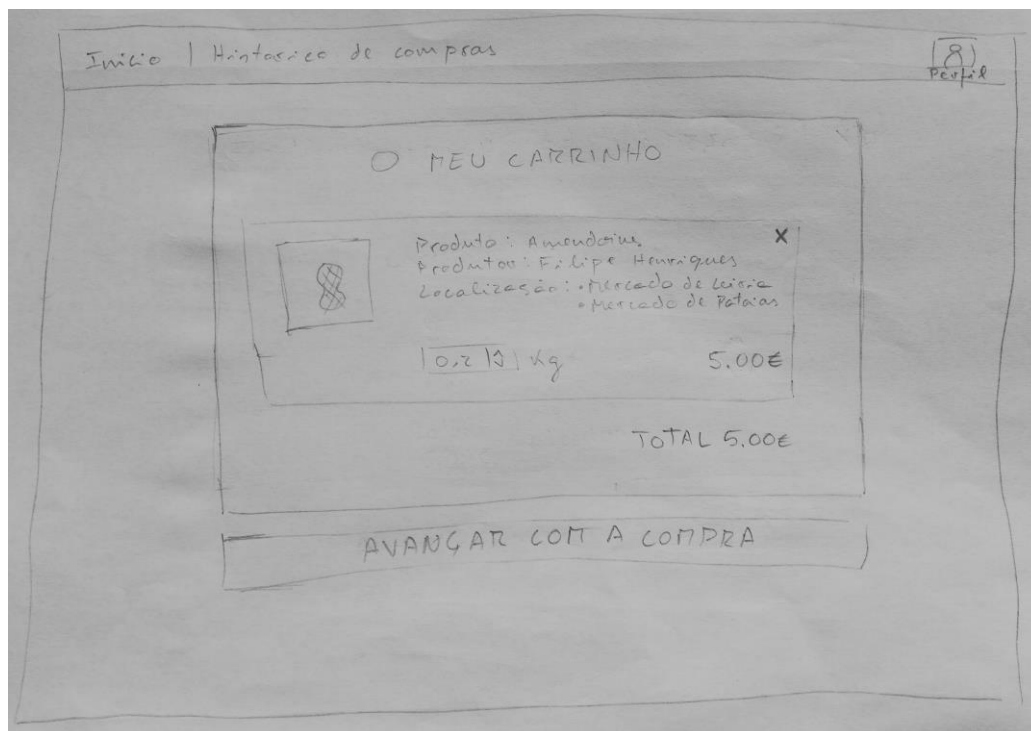 Início | Histórico de compras
Perfil
O MEU CARRINHO
Produto: Amendoins
Produtor: Filipe Henriques
Localização: • Mercado de Leiria
• Mercado de Pataias
X
0,2 Kg
5.00€
TOTAL 5.00€
AVANÇAR COM A COMPRA